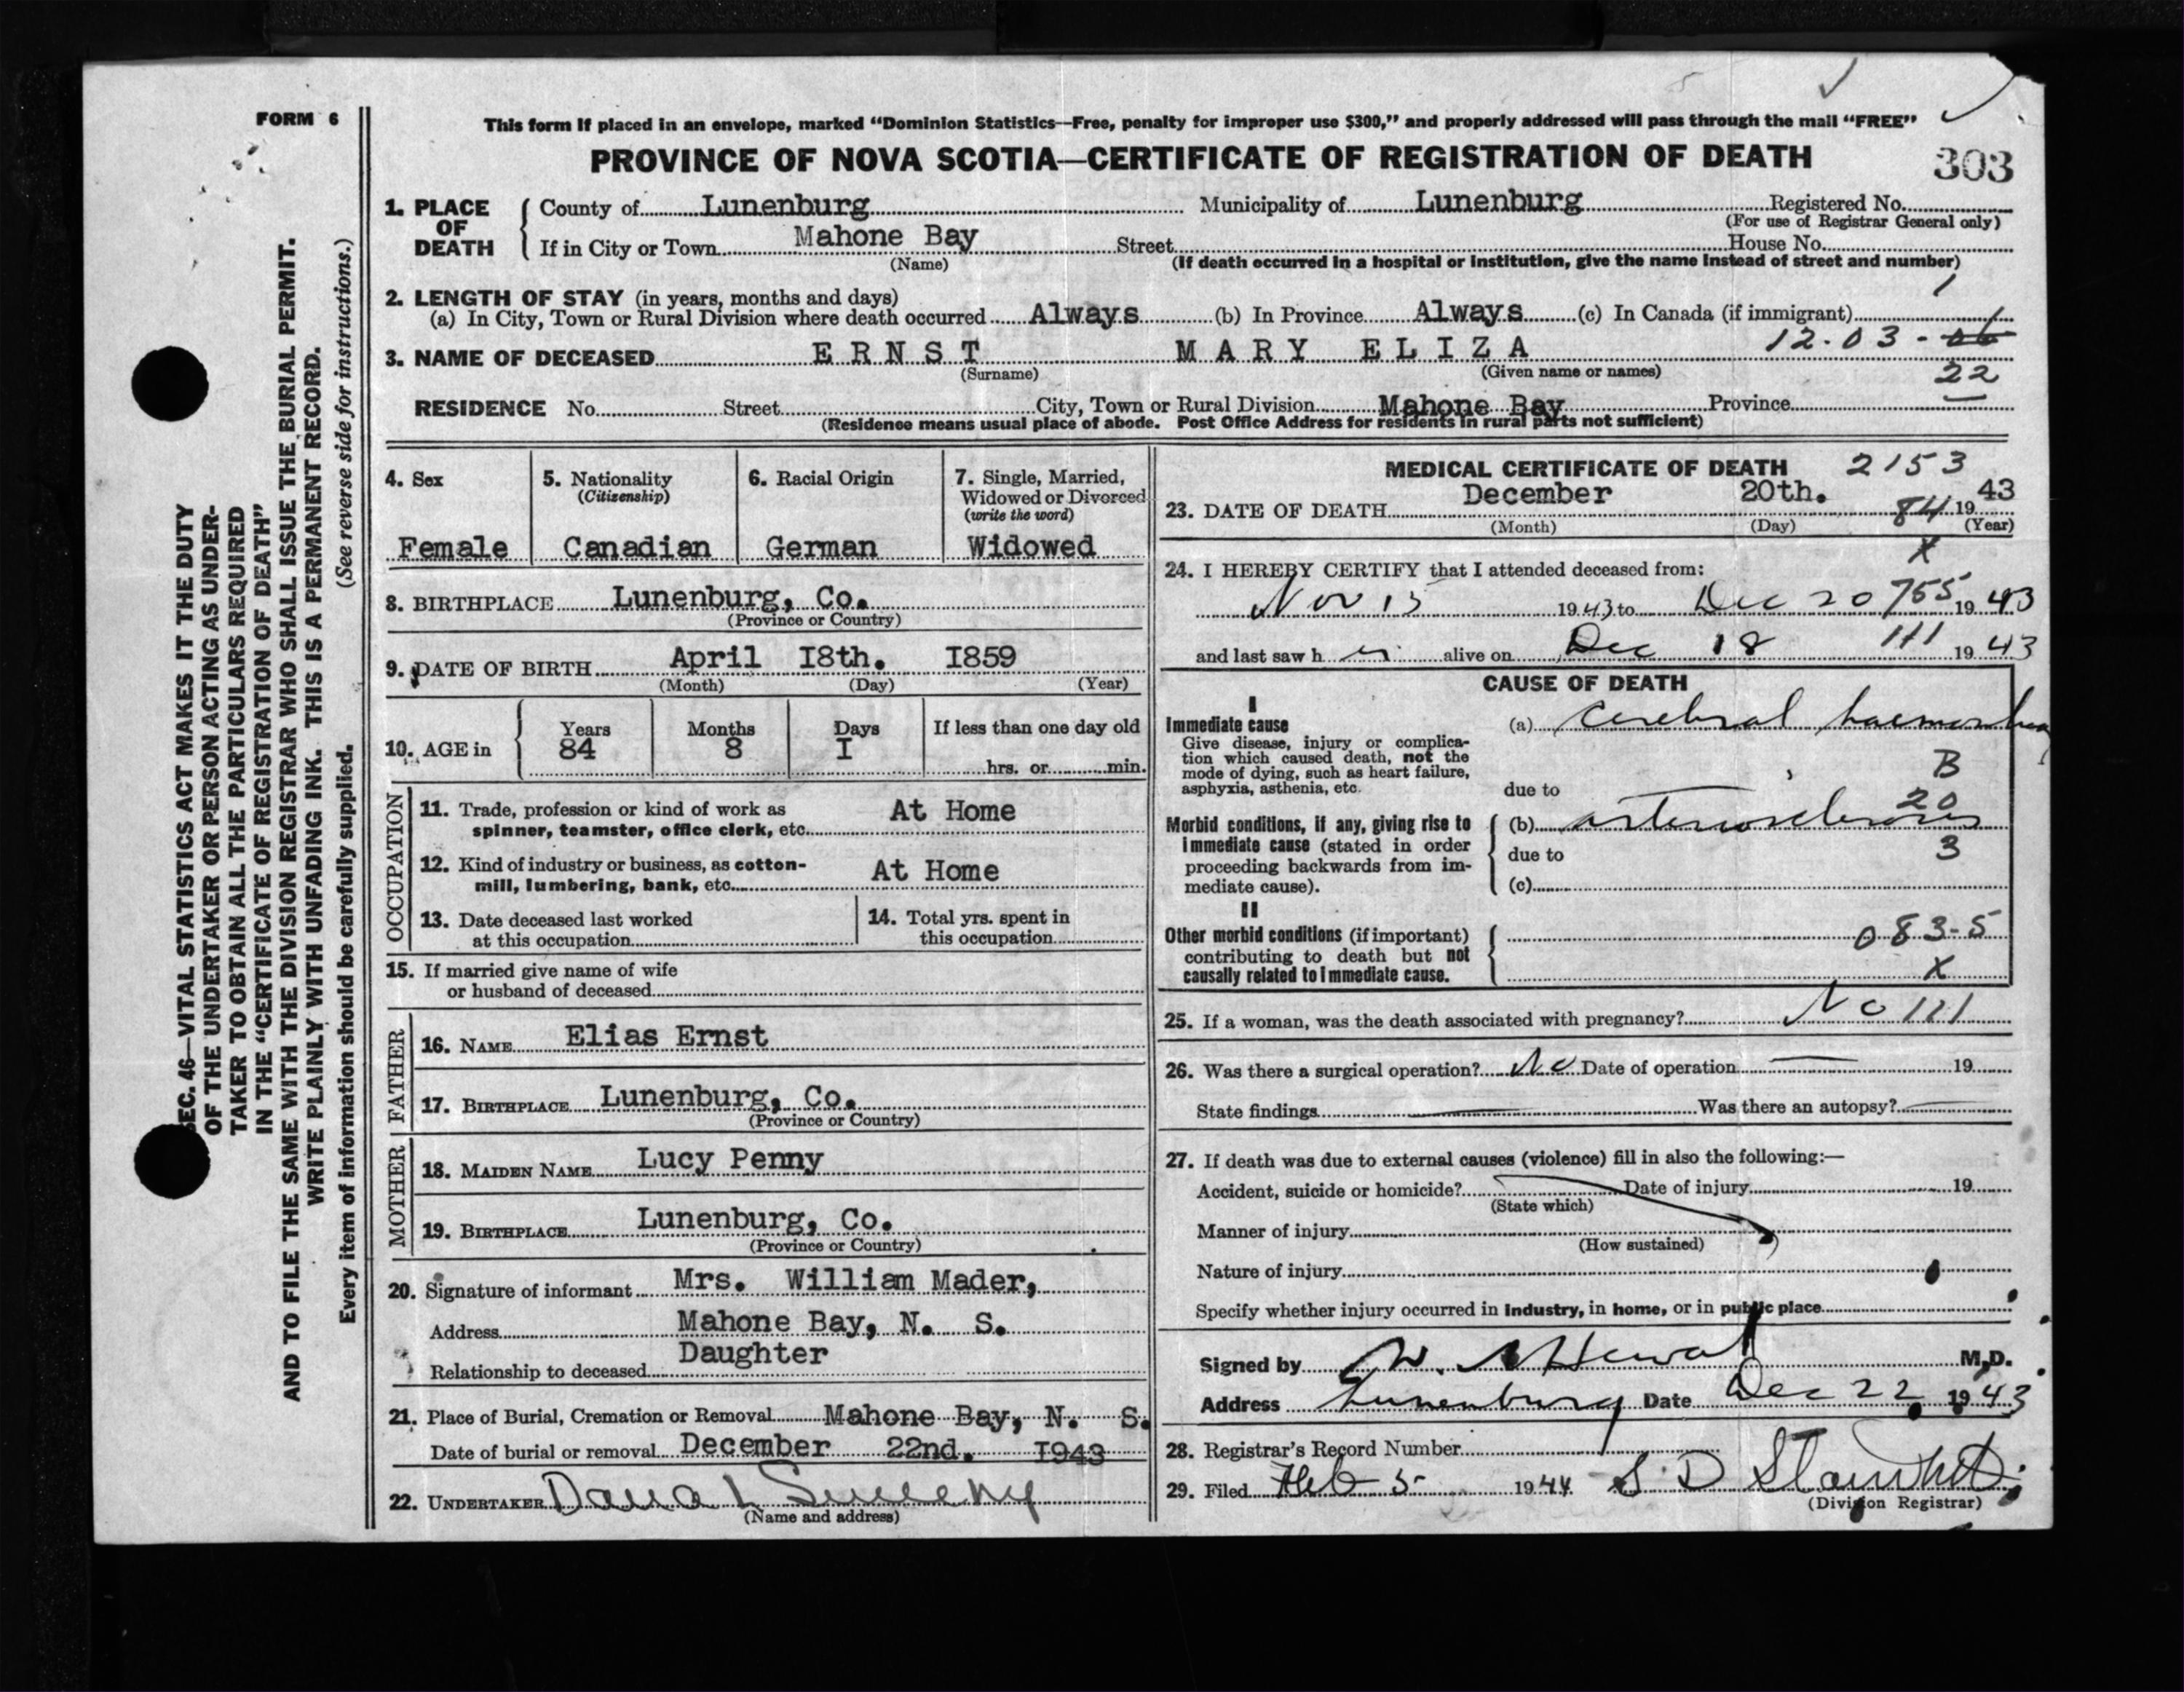 FORM 6
This form if placed in an envelope, marked "Dominion Statistics—Free, penalty for improper use $300," and properly addressed will pass through the mail "FREE"
PROVINCE OF NOVA SCOTIA—CERTIFICATE OF REGISTRATION OF DEATH
303
SEC. 46—VITAL STATISTICS ACT MAKES IT THE DUTY
OF THE UNDERTAKER OR PERSON ACTING AS UNDER-
TAKER TO OBTAIN ALL THE PARTICULARS REQUIRED
IN THE "CERTIFICATE OF REGISTRATION OF DEATH"
AND TO FILE THE SAME WITH THE DIVISION REGISTRAR WHO SHALL ISSUE THE BURIAL PERMIT.
WRITE PLAINLY WITH UNFADING INK. THIS IS A PERMANENT RECORD.
Every item of information should be carefully supplied. (See reverse side for instructions.)
1. PLACE OF DEATH
County of Lunenburg Municipality of Lunenburg Registered No.
(For use of Registrar General only)
If in City or Town Mahone Bay Street House No.
(Name) (If death occurred in a hospital or institution, give the name instead of street and number)
2. LENGTH OF STAY (in years, months and days)
(a) In City, Town or Rural Division where death occurred Always (b) In Province Always (c) In Canada (if immigrant)
3. NAME OF DECEASED ERNST MARY ELIZA 12-03-06
(Surname) (Given name or names) 22
RESIDENCE No. Street City, Town or Rural Division Mahone Bay Province
(Residence means usual place of abode. Post Office Address for residents in rural parts not sufficient)
4. Sex
Female
5. Nationality
(Citizenship)
Canadian
6. Racial Origin
German
7. Single, Married,
Widowed or Divorced
(write the word)
Widowed
8. BIRTHPLACE Lunenburg, Co.
(Province or Country)
9. DATE OF BIRTH April I8th. I859
(Month) (Day) (Year)
10. AGE in
Years Months Days If less than one day old
84 8 I
hrs. or min.
OCCUPATION
11. Trade, profession or kind of work as
spinner, teamster, office clerk, etc. At Home
12. Kind of industry or business, as cotton-
mill, lumbering, bank, etc. At Home
13. Date deceased last worked
at this occupation
14. Total yrs. spent in
this occupation
15. If married give name of wife
or husband of deceased
FATHER
16. NAME Elias Ernst
17. BIRTHPLACE Lunenburg, Co.
(Province or Country)
MOTHER
18. MAIDEN NAME Lucy Penny
19. BIRTHPLACE Lunenburg, Co.
(Province or Country)
20. Signature of informant Mrs. William Mader,
Address Mahone Bay, N. S.
Relationship to deceased Daughter
21. Place of Burial, Cremation or Removal Mahone Bay, N. S.
Date of burial or removal December 22nd. I943
22. UNDERTAKER
(Name and address)
MEDICAL CERTIFICATE OF DEATH 2153
23. DATE OF DEATH December 20th. 84 1943
(Month) (Day) (Year)
X
24. I HEREBY CERTIFY that I attended deceased from:
Nov 15 1943 to Dec 20 755 1943
and last saw h er alive on Dec 18 1943
CAUSE OF DEATH
I
Immediate cause
Give disease, injury or complica-
tion which caused death, not the
mode of dying, such as heart failure,
asphyxia, asthenia, etc.
(a) cerebral haemorrhage
B
due to
20
Morbid conditions, if any, giving rise to
immediate cause (stated in order
proceeding backwards from im-
mediate cause).
(b) arteriosclerosis
due to
3
(c)
II
Other morbid conditions (if important)
contributing to death but not
causally related to immediate cause.
083-5
X
25. If a woman, was the death associated with pregnancy? No 111
26. Was there a surgical operation? No Date of operation — 19
State findings — Was there an autopsy? —
27. If death was due to external causes (violence) fill in also the following:—
Accident, suicide or homicide? Date of injury 19
(State which)
Manner of injury
(How sustained)
Nature of injury
Specify whether injury occurred in industry, in home, or in public place
Signed by M.D.
Address Lunenburg Date Dec 22 1943
28. Registrar's Record Number
29. Filed Feb 5 1944
(Division Registrar)